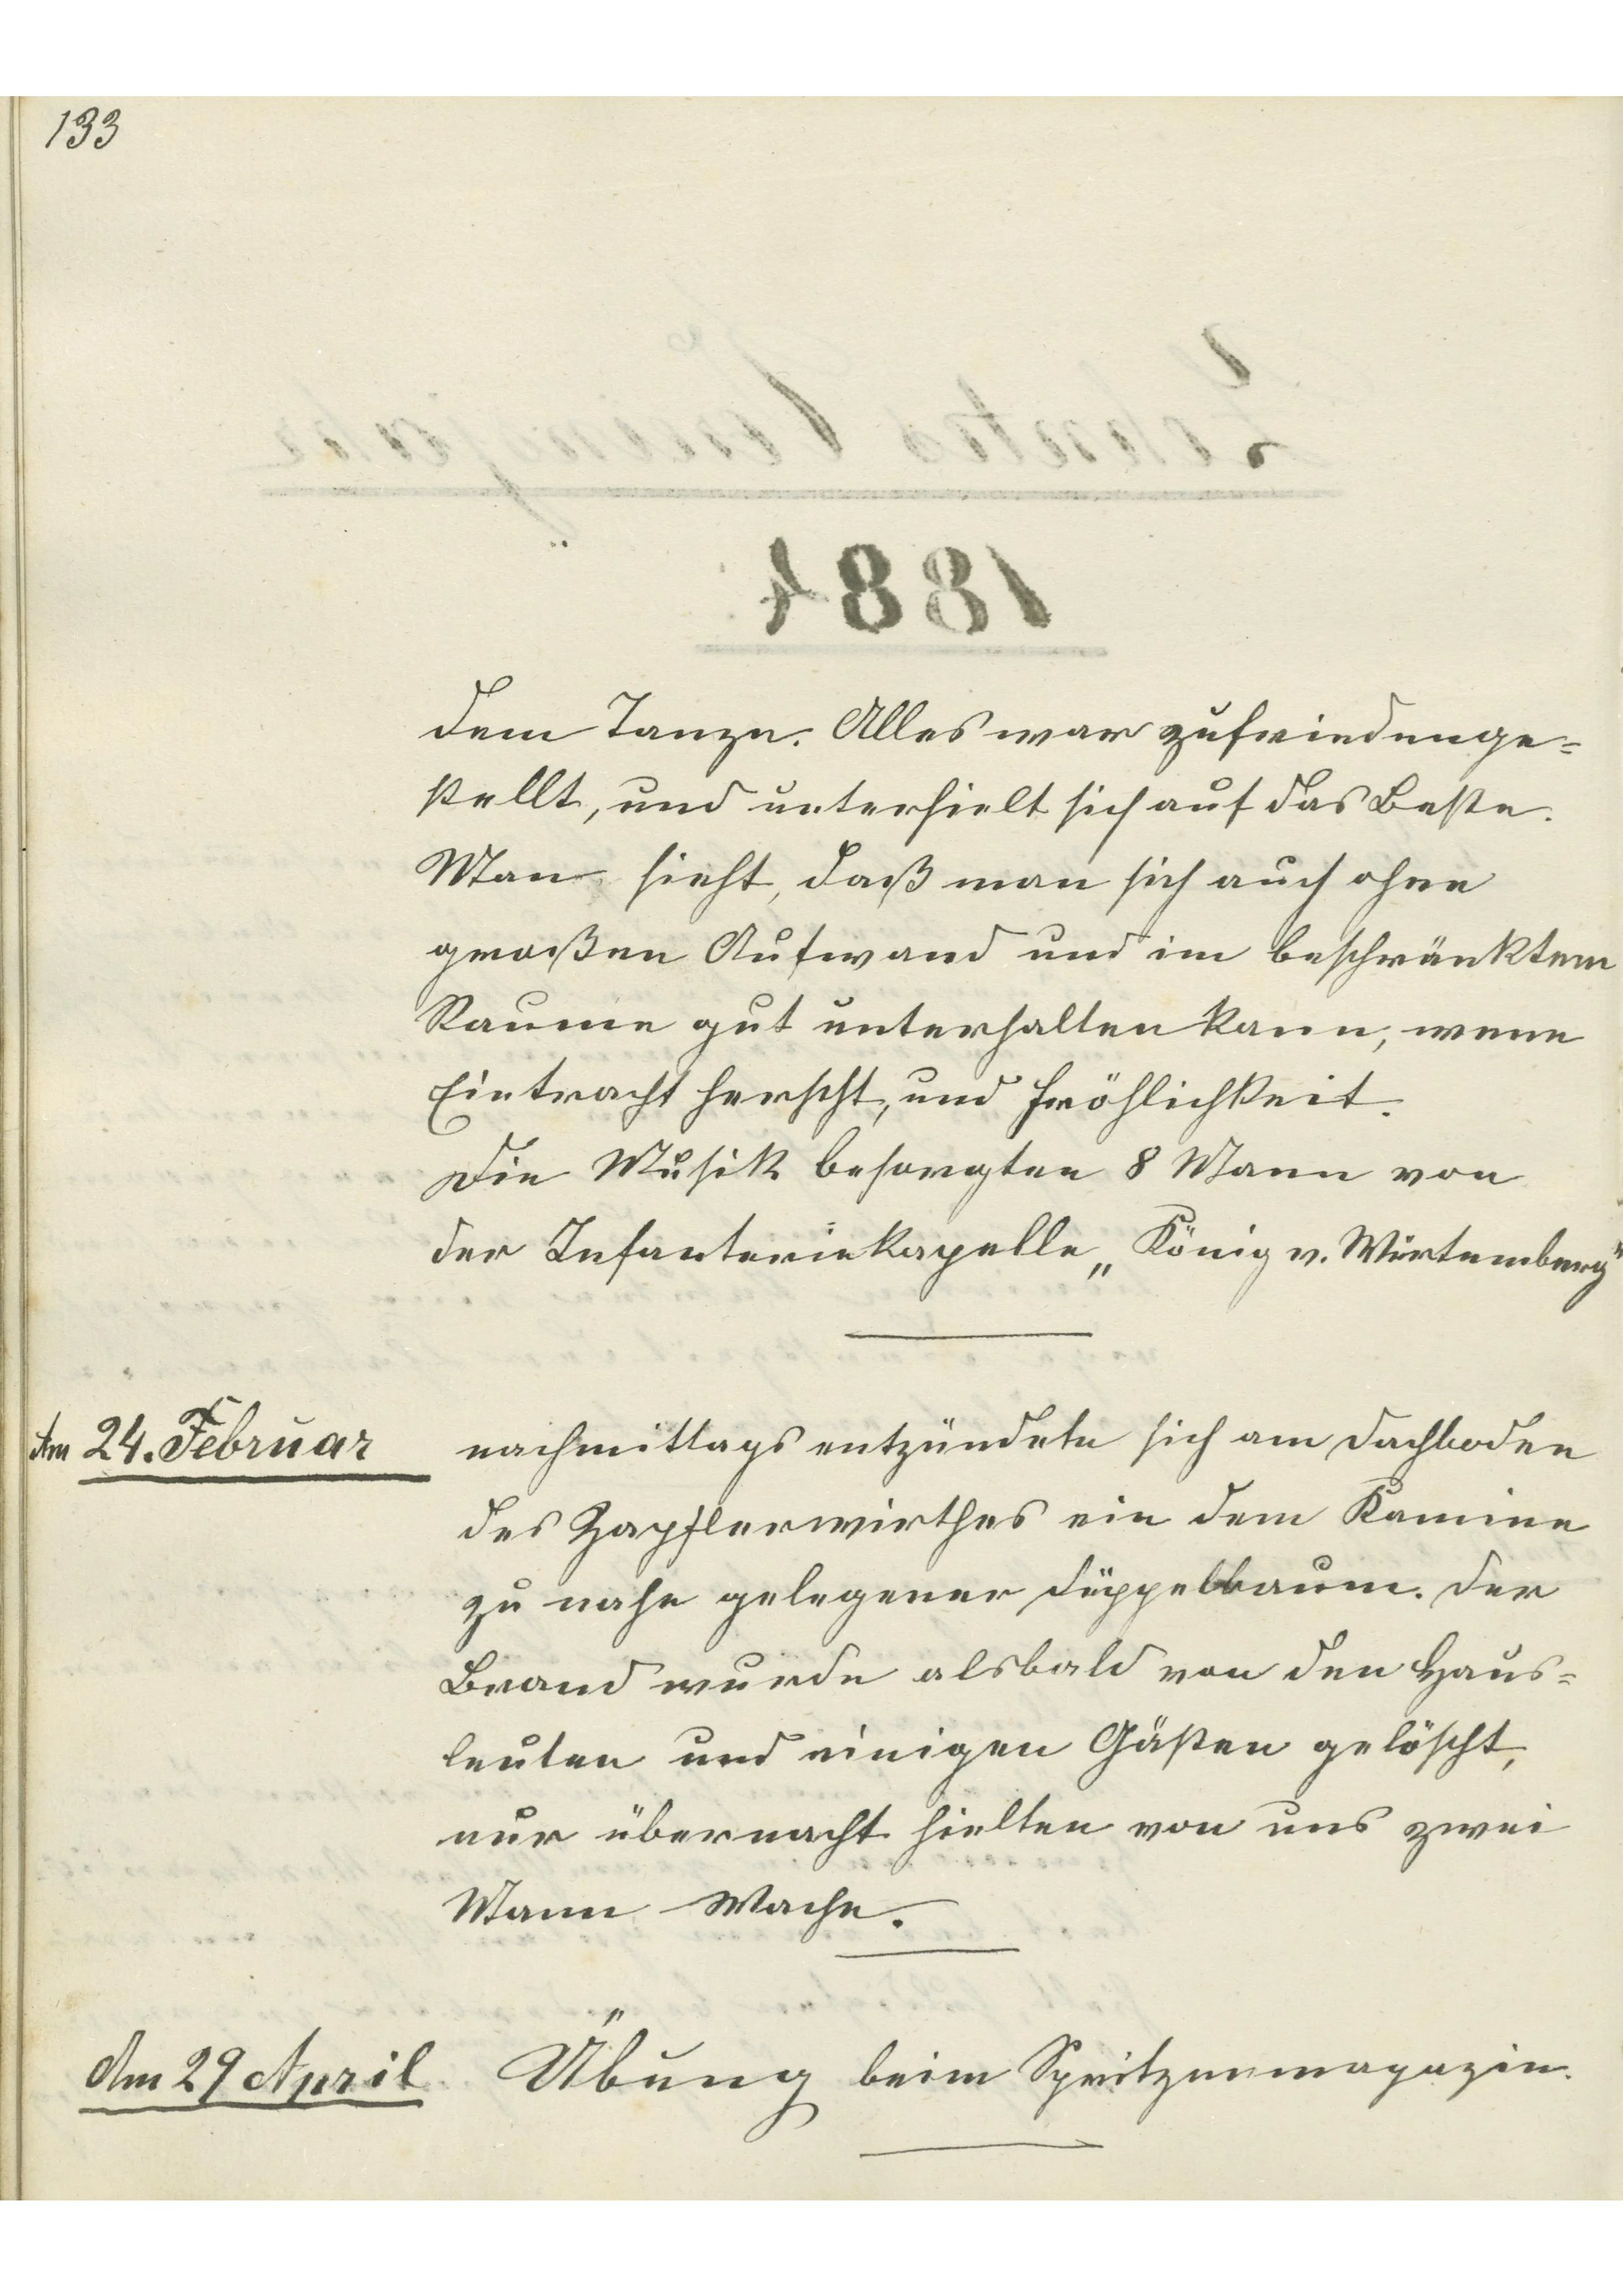 133
dem Tanze. Alles war zufriedenge=
stellt, und unterhielt sich auf das Beste.
Man sieht, daß man sich auch ohne
großen Aufwand und im beschränktem
Raume gut unterhalten kann, wenn
Eintracht herscht, und Fröhlichkeit.
Die Musik besorgten 8 Mann von
der Infanteriekapelle „König v. Würtemberg"
Am 24. Februar nachmittags entzündete sich am Dachboden
des Zapflerwirthes ein dem Kamine
zu nahe gelegener Düppelbaum. Der
Brand wurde alsbald von den Haus=
leuten und einigen Gästen gelöscht,
nur übernacht hielten von uns zwei
Mann Wache.
Am 29 April Übung beim Spritzenmagazin.